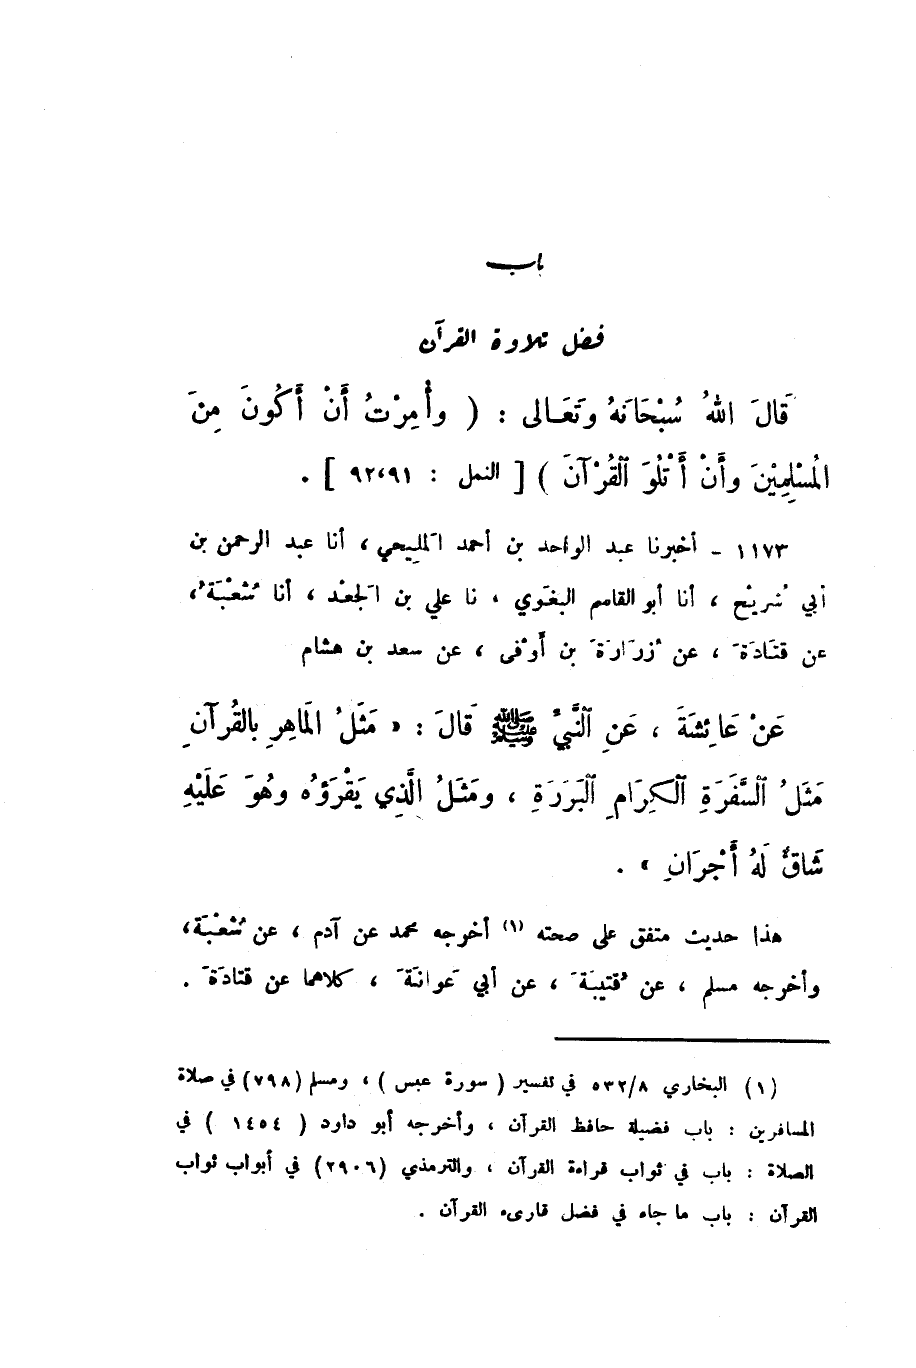 باب
فضل تلاوة القرآن
قَالَ اللهُ سُبْحَانَهُ وَتَعَالى : ( وأُمِرْتُ أَنْ أَكُونَ مِنَ
المُسْلِمِيْنَ وأَنْ أَتْلُوَ القُرْآنَ ) [ النمل : ٩٢،٩١ ] .
١١٧٣ – أخبرنا عبد الواحد بن أحمد المَلِيحي ، أنا عبد الرحمن بن
أبي شُريْح ، أنا أبو القاسم البغَوي ، نا علي بن الجَعْد ، أنا شُعْبَة ُ ،
عن قتَادَةَ ، عن زُرَارَةَ بن أَوْفى ، عن سعد بن هشام
عَنْ عَائِشَةَ ، عَنِ النَّبيِّ ﷺ قَالَ : « مَثَلُ المَاهِرِ بِالقُرآنِ
مَثَلُ السَّفَرَةِ الكِرَامِ البَرَرَةِ ، ومَثَلُ الَّذِي يَقْرَؤُه وهُوَ عَلَيْهِ
شَاقٌّ لَهُ أَجْرَانِ » .
هذا حديث متفق على صحته (١) أخرجه محمد عن آدم ، عن شُعْبَة ،
وأخرجه مسلم ، عن قُتيبَةَ ، عن أبي عَوانَةَ ، كلاهما عن قتادَةَ .
(١) البخاري ٥٣٢/٨ في تفسير ( سورة عبس ) ، ومسلم (٧٩٨) في صلاة
المسافرين : باب فضيلة حافظ القرآن ، وأخرجه أبو داود ( ١٤٥٤ ) في
الصلاة : باب في ثواب قراءة القرآن ، والترمذي (٢٩٠٦) في أبواب ثواب
القرآن : باب ما جاء في فضل قارىء القرآن .